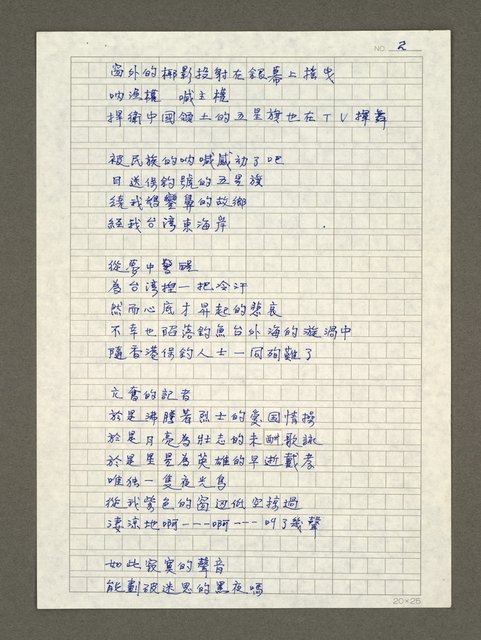 NO. 2
窗外的椰影投射在銀幕上搖曳
吶漁權 喊主權
捍衛中國領土的五星旗也在TV揮舞
被民族的吶喊感动了吧
目送保釣號的五星旗
繞我鵝鑾鼻的故鄉
經我台湾東海岸
從夢中驚醒
為台湾捏一把冷汗
然而心底才昇起的悲哀
不幸也陷落釣魚台外海的漩渦中
隨香港保釣人士一同殉難了
亢奮的記者
於是沸騰著烈士的愛国情操
於是月亮為壯志的未酬歌詠
於是星星為英雄的早逝戴孝
唯独一隻夜光鳥
從我螢色的窗边低空掠過
凄涼地啊---啊---叫了幾聲
如此寂寞的聲音
能劃破迷思的黑夜嗎
20×25